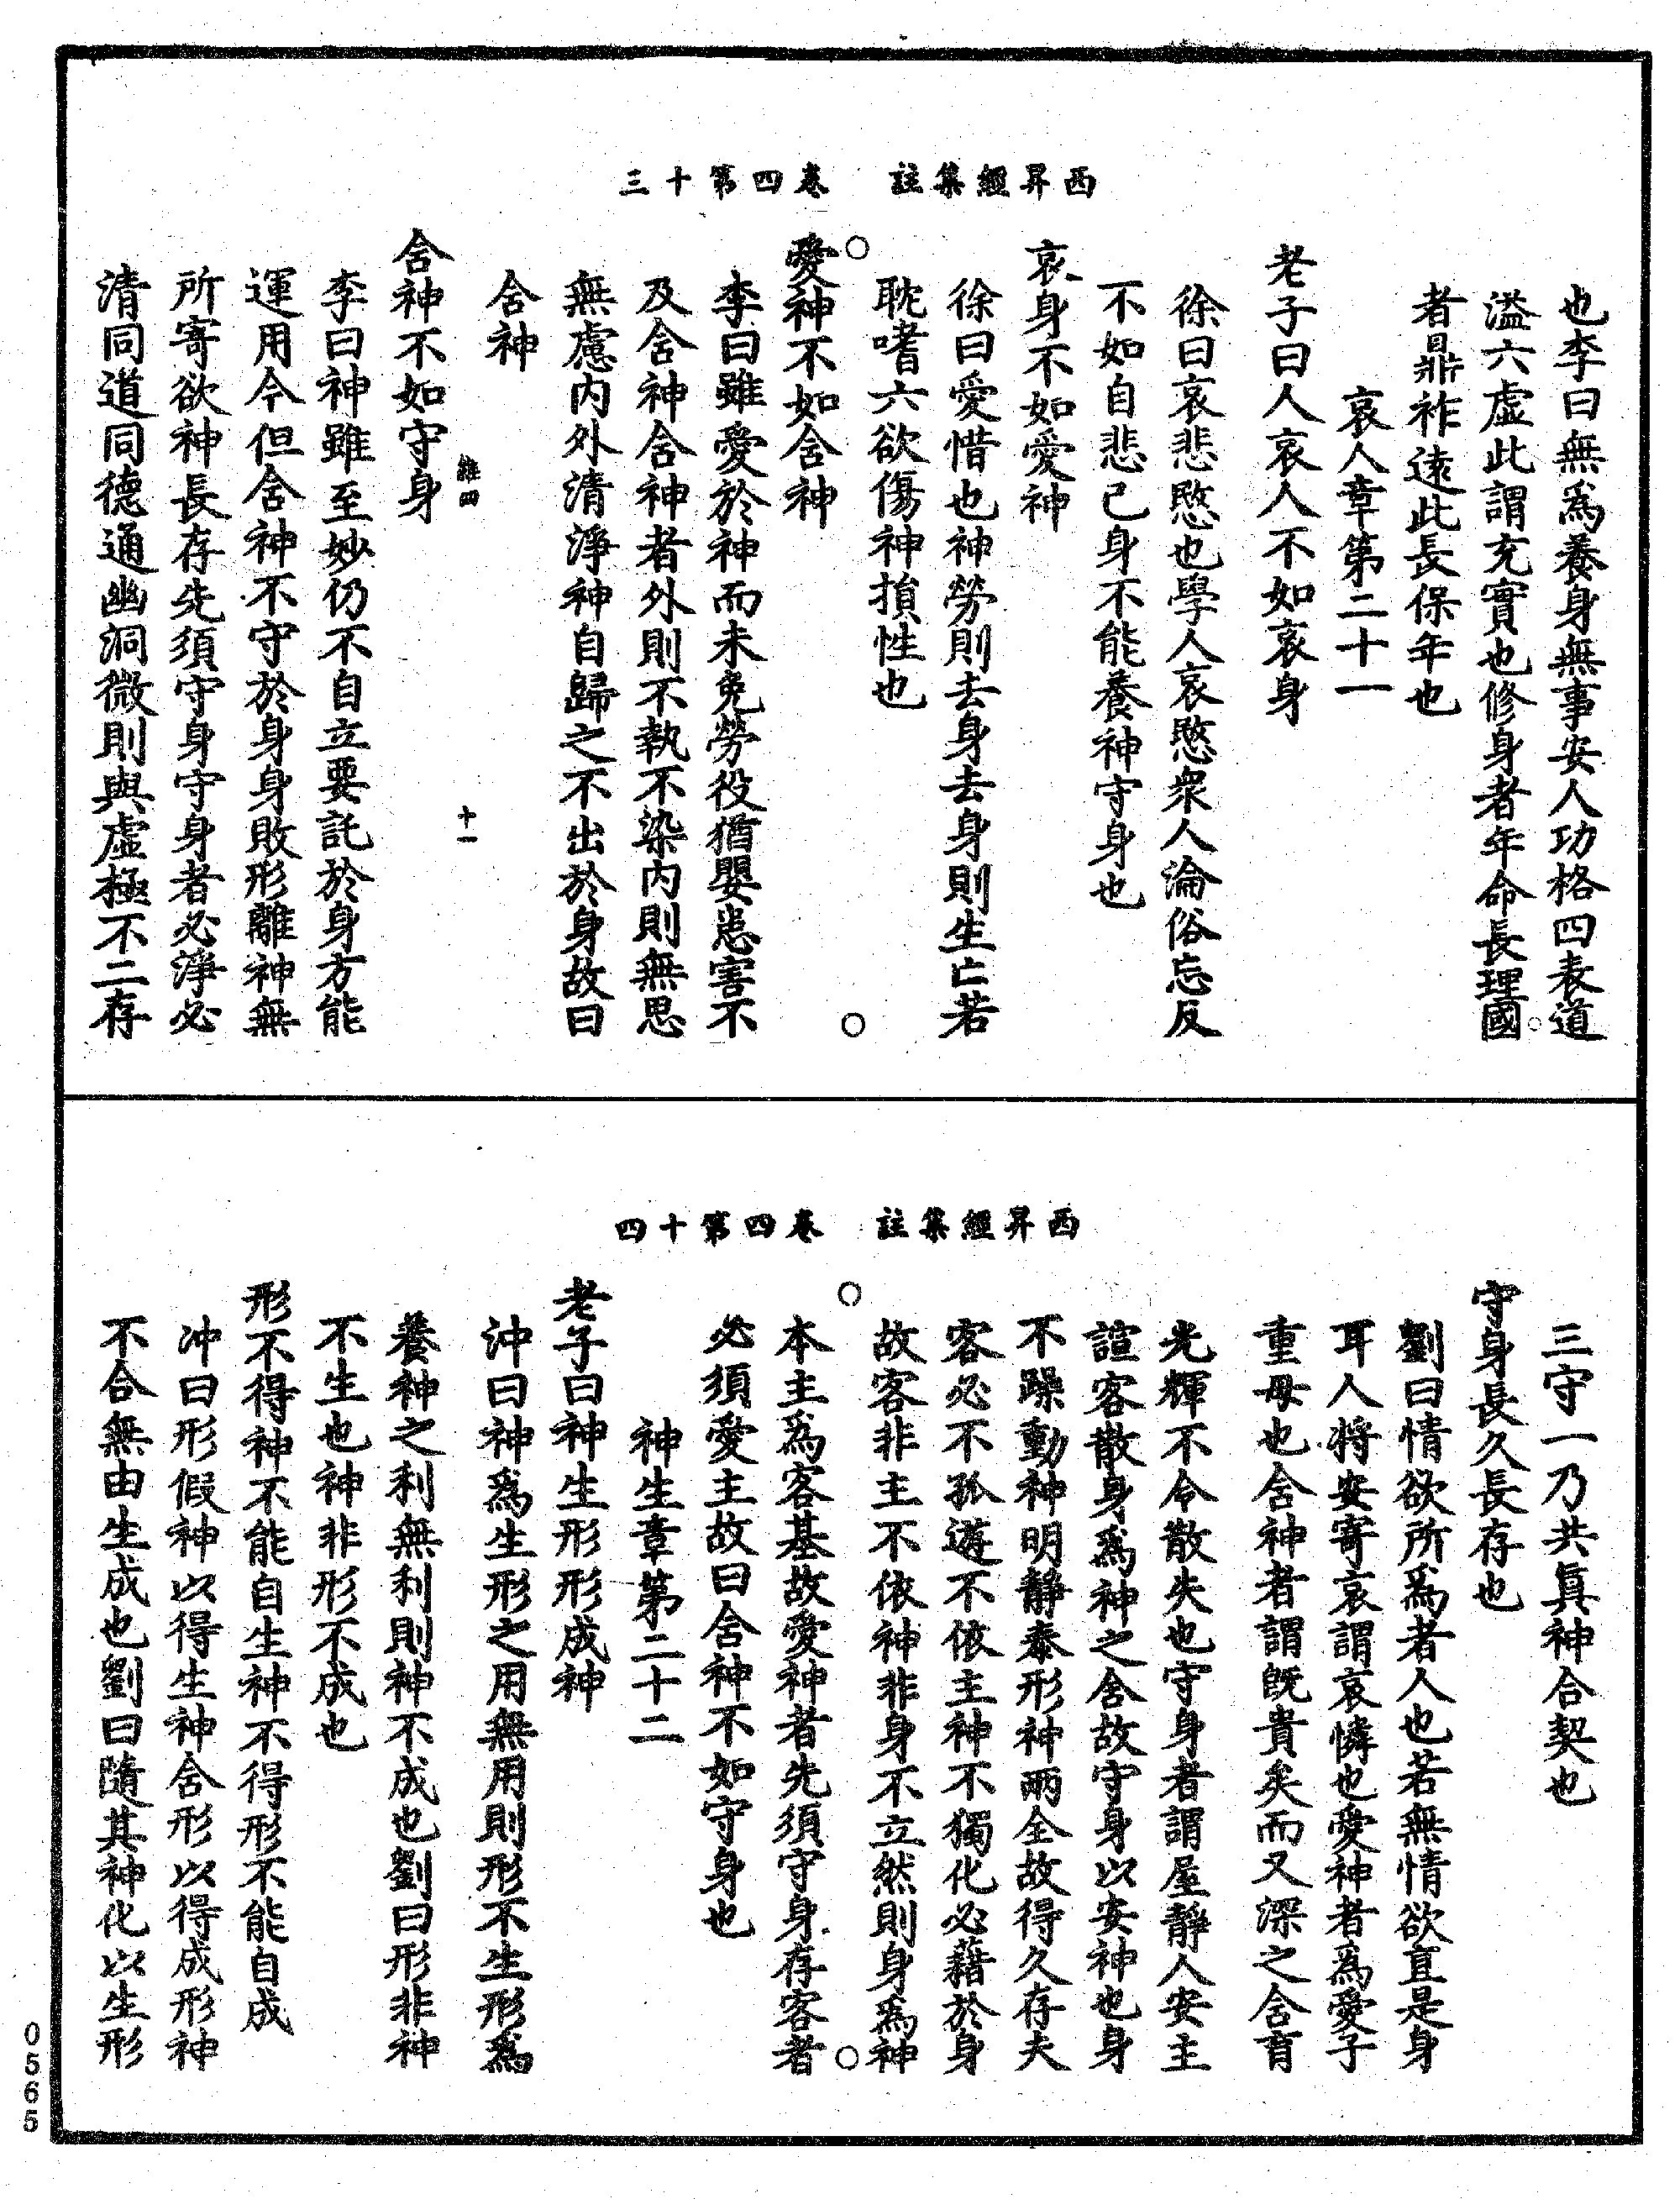 西昇經集註　卷四第十三
也李曰無爲養身無事安人功格四表道
溢六虛此謂充實也修身者年命長理國
者鼎祚遠此長保年也
哀人章第二十一
老子曰人哀人不如哀身
徐曰哀悲愍也學人哀愍衆人淪俗忘反
不如自悲己身不能養神守身也
哀身不如愛神
徐曰愛惜也神勞則去身去身則生亡若
耽嗜六欲傷神損性也
愛神不如舍神
李曰雖愛於神而未免勞役猶嬰患害不
及舍神舍神者外則不執不染內則無思
無慮內外清淨神自歸之不出於身故曰
舍神
維四　十一
舍神不如守身
李曰神雖至妙仍不自立要託於身方能
運用今但舍神不守於身身敗形離神無
所寄欲神長存先須守身守身者必淨必
清同道同德通幽洞微則與虛極不二存
西昇經集註　卷四第十四
三守一乃共眞神合契也
守身長久長存也
劉曰情欲所爲者人也若無情欲直是身
耳人將安寄哀謂哀憐也愛神者爲愛子
重母也舍神者謂旣貴矣而又深之舍育
光輝不令散失也守身者謂屋靜人安主
諠客散身爲神之舍故守身以安神也身
不躁動神明靜泰形神兩全故得久存夫
客必不孤遊不依主神不獨化必藉於身
故客非主不依神非身不立然則身爲神
本主爲客基故愛神者先須守身存客者
必須愛主故曰舍神不如守身也
神生章第二十二
老子曰神生形形成神
沖曰神爲生形之用無用則形不生形爲
養神之利無利則神不成也劉曰形非神
不生也神非形不成也
形不得神不能自生神不得形不能自成
沖曰形假神以得生神舍形以得成形神
不合無由生成也劉曰隨其神化以生形
0565